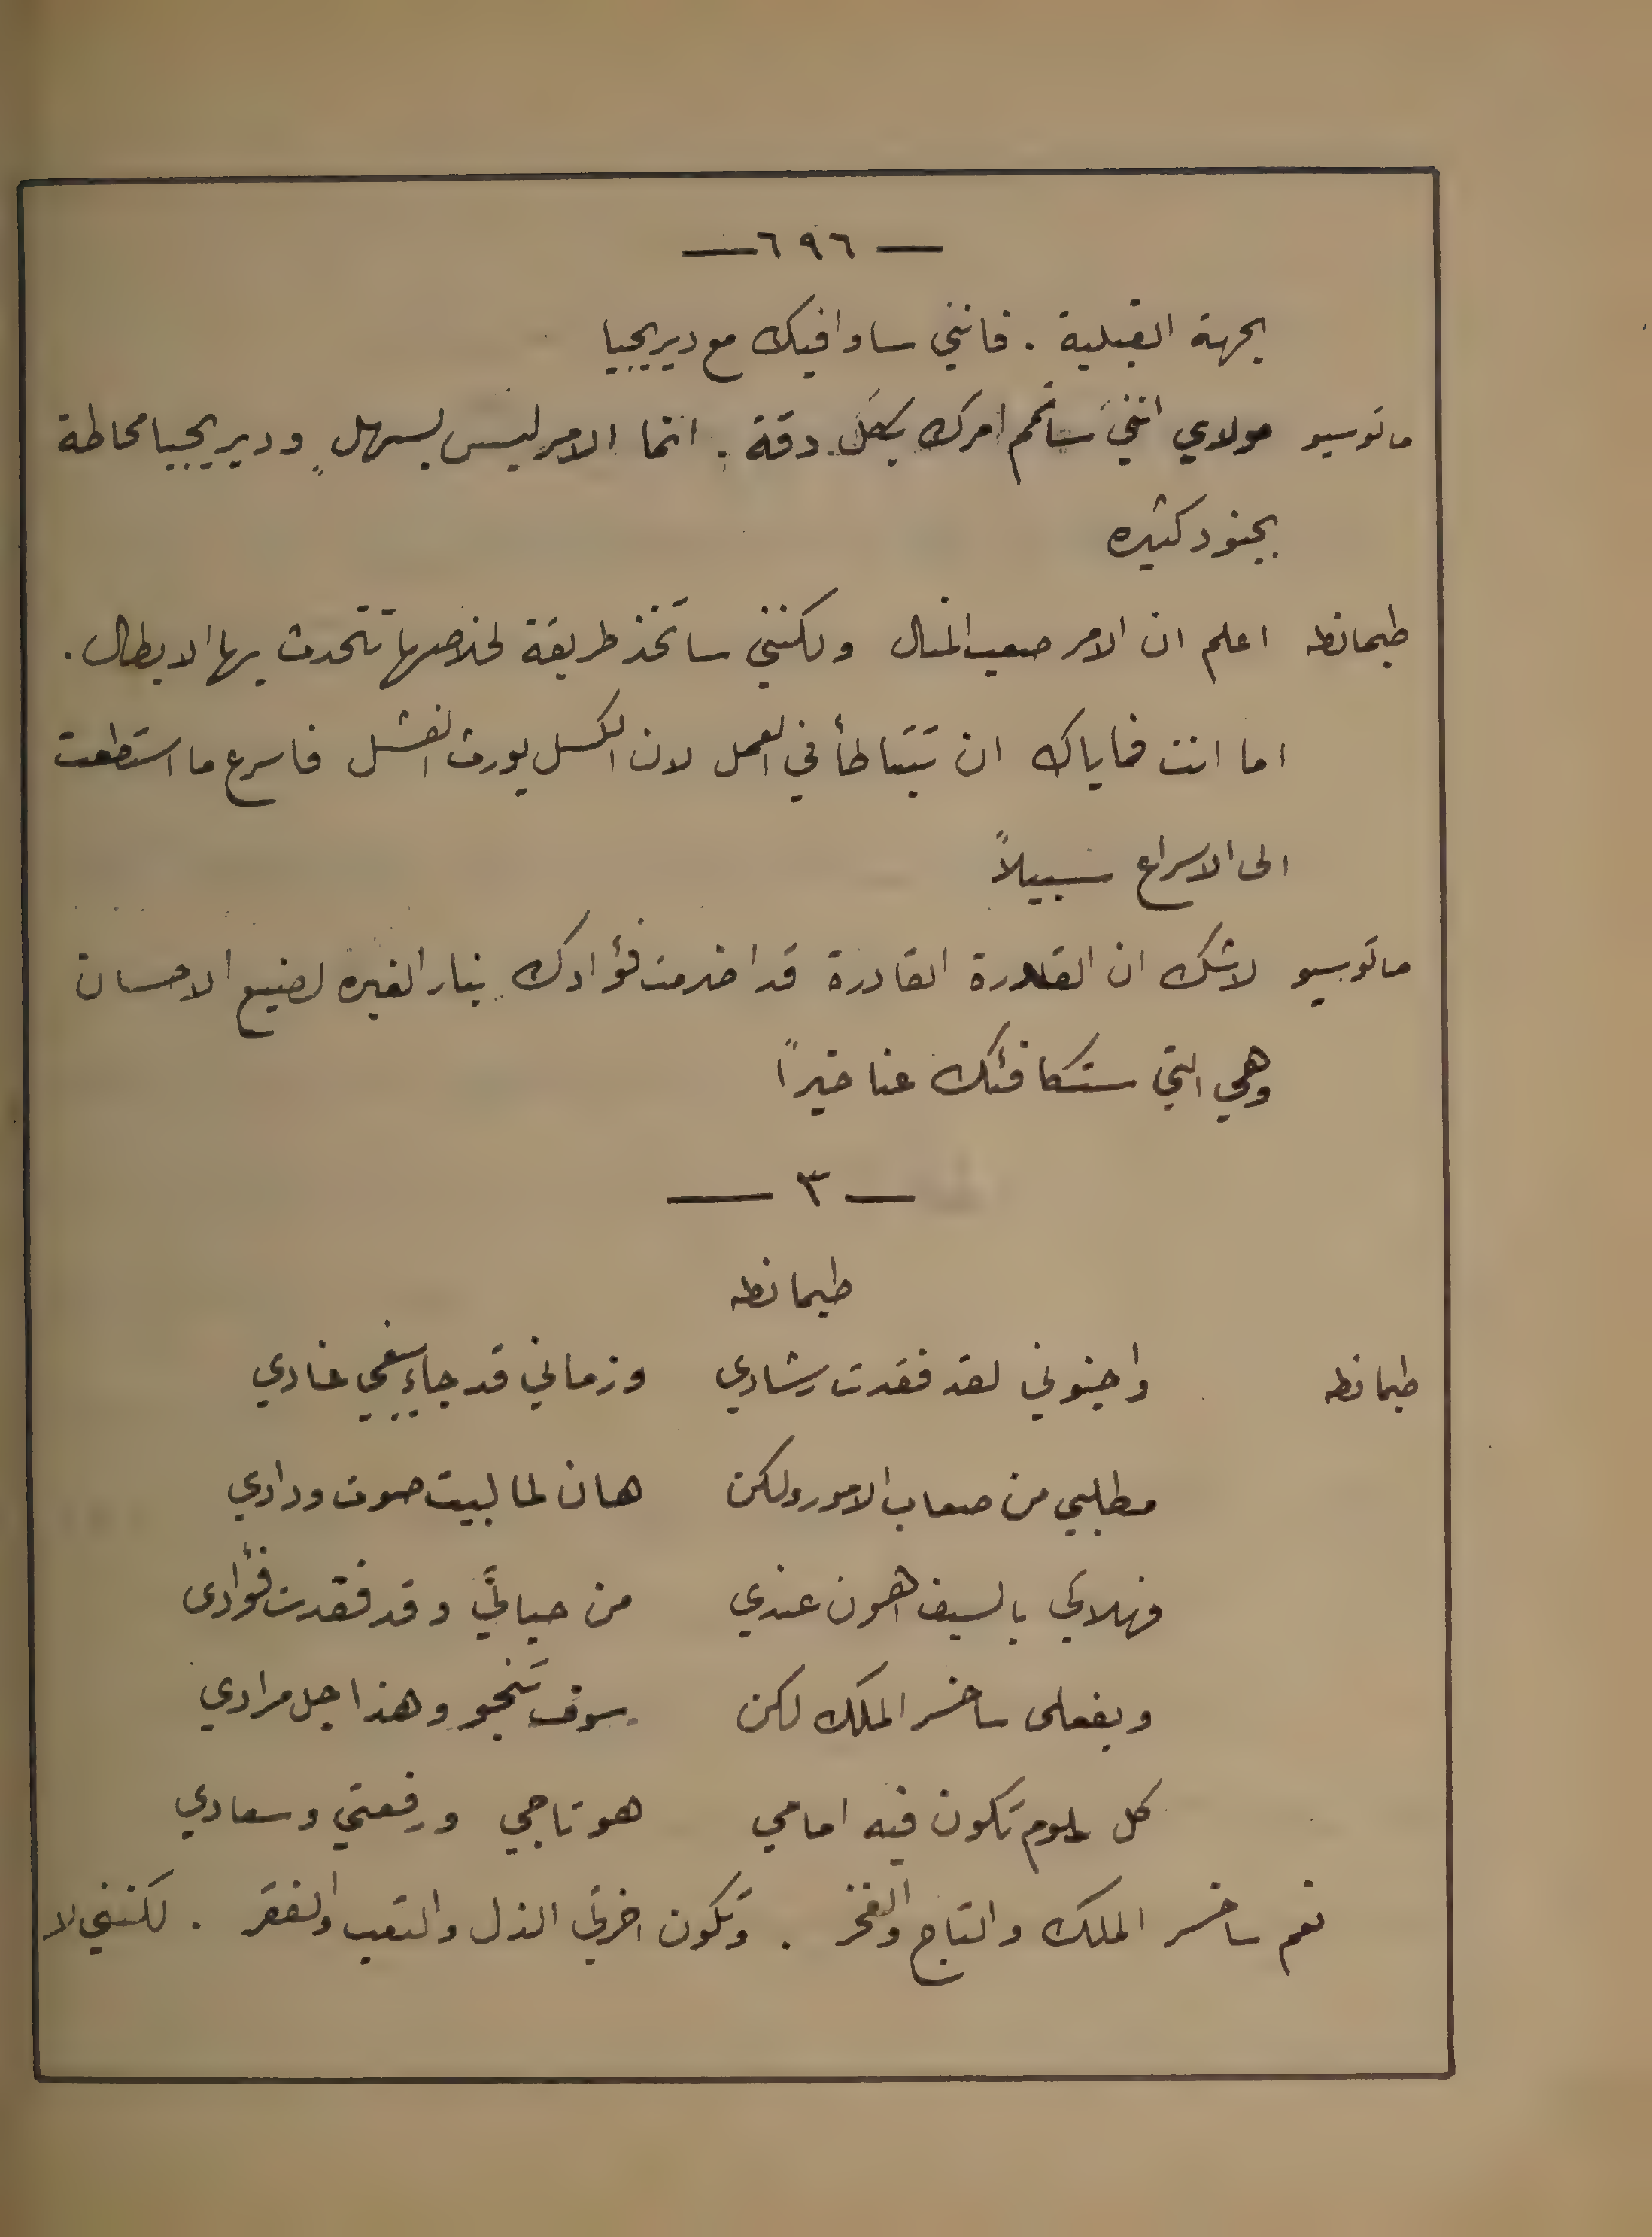 — ٦٩٦ —
بجهة القبلية . فانني ساوافيك مع ديريجيا
ماتوسيو مولاي انني سأتمم امرك بكل دقة . انما الامر ليس بسهل وديريجيا محاطة
بجنود كثيره
طيمانطه اعلم ان الامر صعب المنال ولكنني ساتخذ طريقة لخلاصها تتحدث بها الابطال .
اما انت فاياك ان تتباطأ في العمل لان الكسل يورث الفشل فاسرع ما استطعت
الى الاسراع سبيلاً
ماتوسيو لاشك ان القدرة القادرة قد اضرمت فؤادك بنار الغيره لصنيع الاحسان
وهي التي ستكافئك عنا خيراً
— ٣ —
طيمانطه
طيمانطه واجنوني لقد فقدت رشادي وزماني قد جاء يبغي عنادي
مطلبي من صعاب الامور ولكن هان لما لبيت صوت ودادي
فهلاكي بالسيف اهون عندي من حياتي وقد فقدت فؤادى
وبفعلى ساخسر الملك لكن سوف تنجو وهذا جل مرادي
كل يوم تكون فيه امامي هو تاجي ورفعتي وسعادي
نعم ساخسر الملك والتاج والفخر . وتكون اخرتي الذل والتعب والفقر . لكنني لا